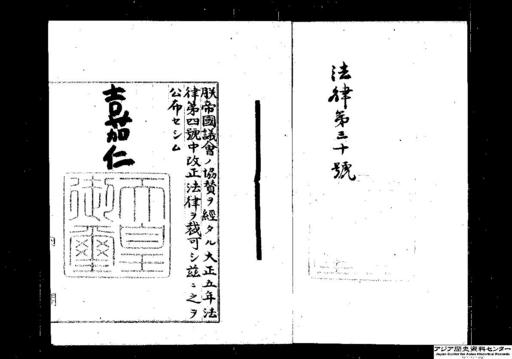 法律第三十號
朕帝國議會ノ協贊ヲ經タル大正五年法
律第四號中改正法律ヲ裁可シ茲ニ之ヲ
公布セシム
嘉仁
天皇
御璽
内閣
アジア歴史資料センター
Japan Center for Asian Historical Records